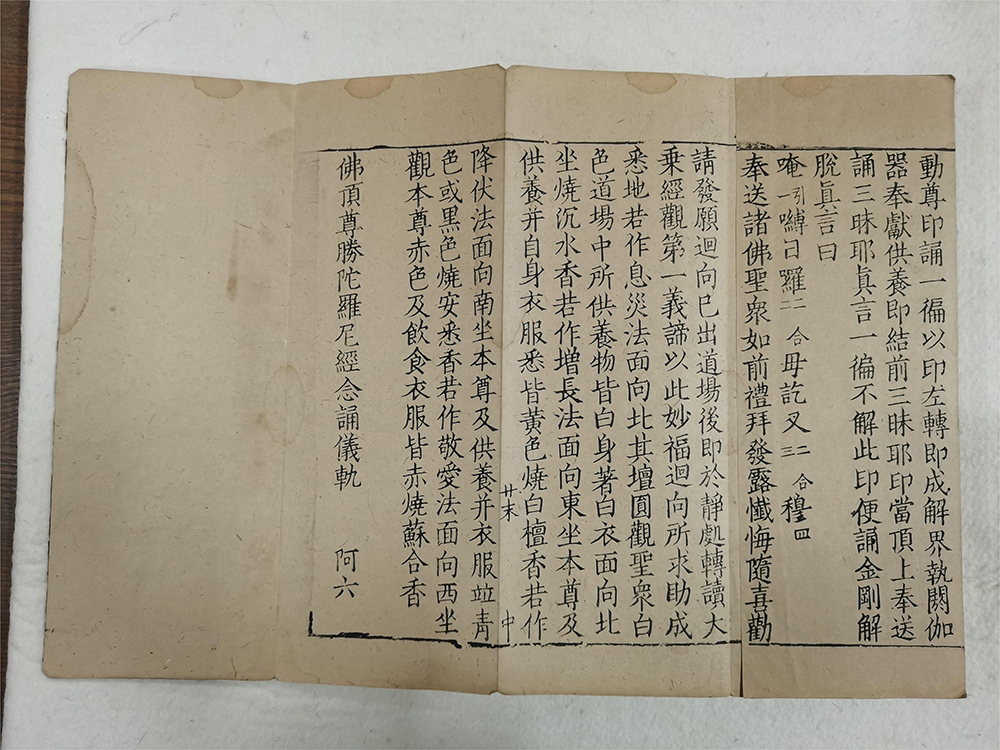 動尊印誦一徧以印左轉即成解界執閼伽
器奉獻供養即結前三昧耶印當頂上奉送
誦三昧耶眞言一徧不解此印便誦金剛解
脫眞言曰
唵引一嚩日羅二合二毋訖叉二合三穆四
奉送諸佛聖衆如前禮拜發露懺悔隨喜勸
請發願迴向巳出道場後即於靜處轉讀大
乗經觀第一義諦以此妙福迴向所求助成
悉地若作息災法面向北其壇圓觀聖衆白
色道場中所供養物皆白身著白衣面向北
坐燒沉水香若作増長法面向東坐本尊及
供養并自身衣服悉皆黃色燒白檀香若作
廿末 中
降伏法面向南坐本尊及供養并衣服並青
色或黑色燒安悉香若作敬愛法面向西坐
觀本尊赤色及飲食衣服皆赤燒蘇合香
佛頂尊勝陀羅尼經念誦儀軌 阿六